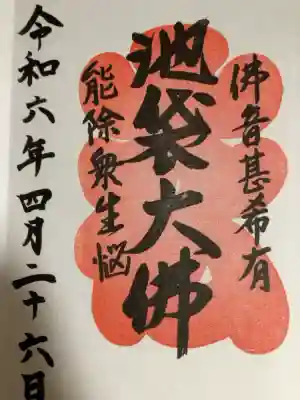 佛音甚希有
池袋大佛
能除衆生悩
令和六年四月二十六日